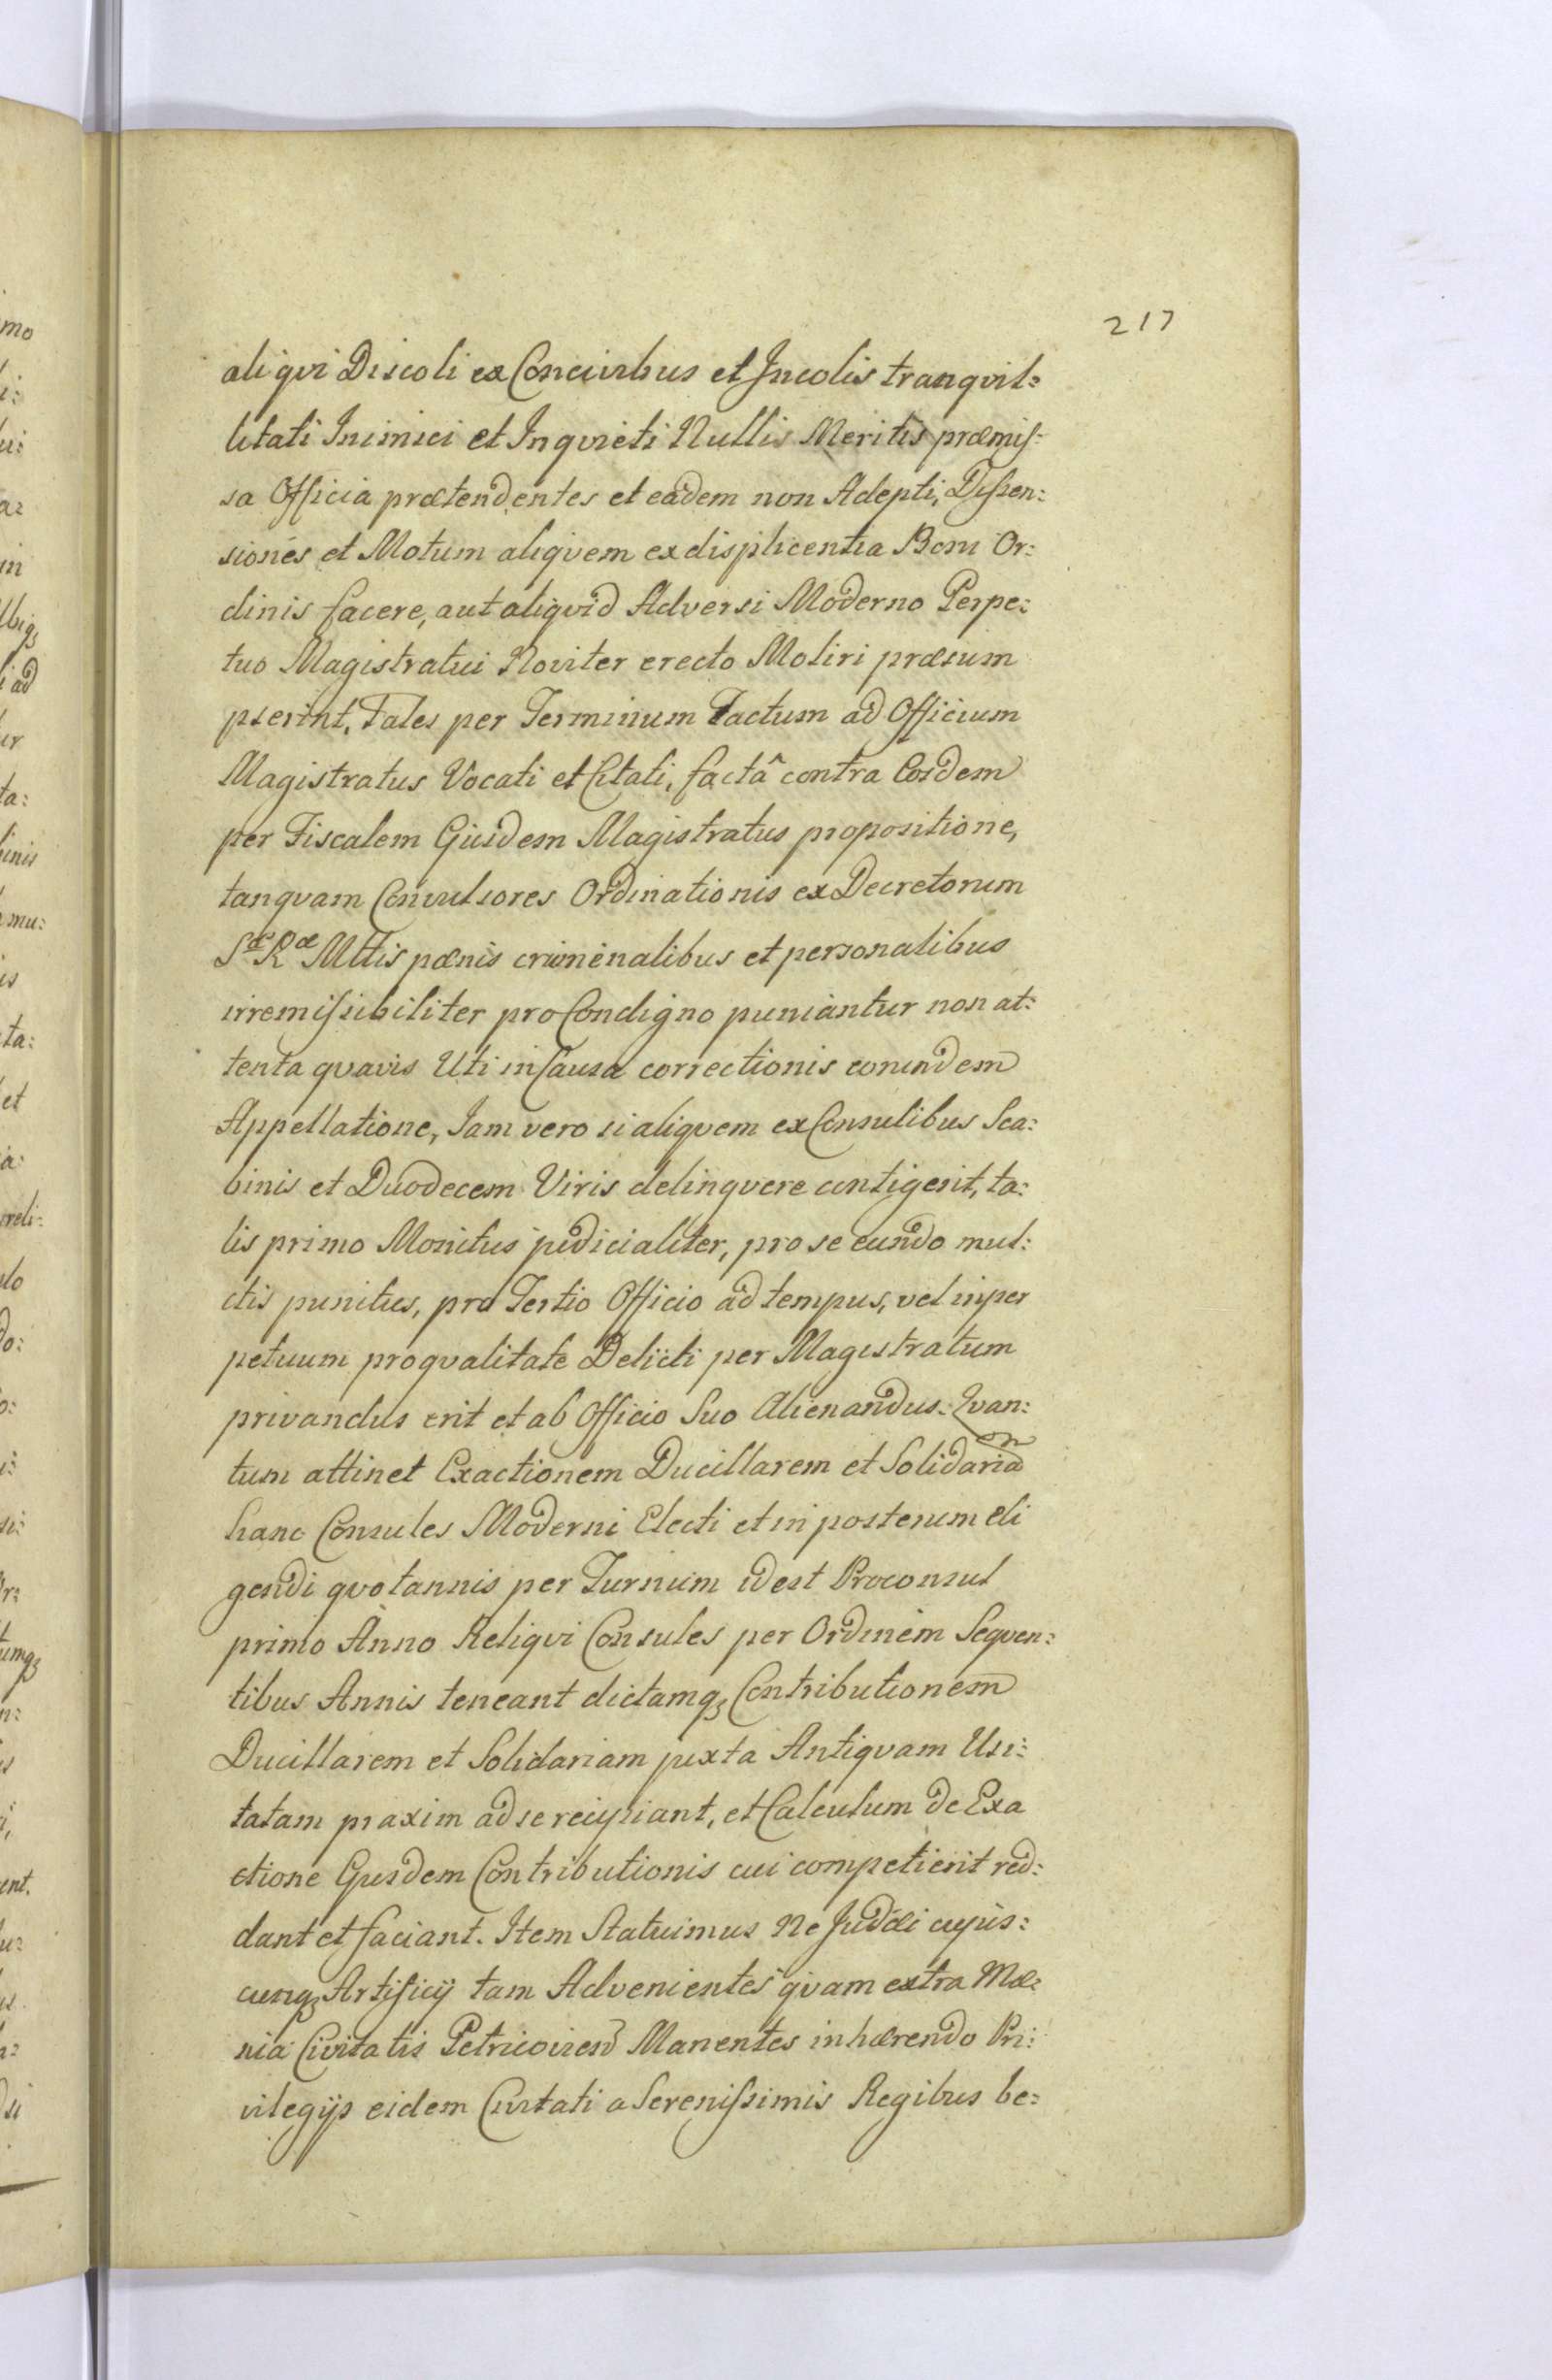 217
aliqvi Discoli ex Concivibus et Incolis tranqvil:
litati Inimici et Inqvieti Nullis Meritis præmiſ:
sa Officia prætendentes et eadem non Adepti, Diſsen:
siones et Motum aliqvem ex displicentia Boni Or:
dinis facere, aut aliqvid Adversi Moderno Perpe:
tuo Magistratui Noviter erecto Moliri præsum
pserint, Tales per Terminum Tactum ad Officium
Magistratus Vocati et Citati, factâ contra Eosdem
per Fiscalem Ejusdem Magistratus propositione,
tanqvam Convulsores Ordinationis ex Decretorum
Sæ Ræ Mttis pœnis criminalibus et personalibus
irremiſsibiliter pro Condigno puniantur non at:
tenta qvavis Uti in Causa correctionis eorundem
Appellatione, Iam vero si aliqvem ex Consulibus Sca:
binis et Duodecem Viris delinqvere contigerit, ta:
lis primo Monitus judicialiter, pro secundo mul:
ctis punitus, pro Tertio Officio ad tempus, vel in per
petuum pro qvalitate Delicti per Magistratum
privandus erit et ab Officio Suo Alienandus. Qvan:
tum attinet Exactionem Ducillarem et Solidaria
hanc Consules Moderni Electi et in posterum eli
gendi qvotannis per Turnum idest Proconsul
primo Anno Reliqvi Consules per Ordinem Seqven:
tibus Annis teneant dictamq3 Contributionem
Ducillarem et Solidariam juxta Antiqvam Usi:
tatam praxim ad se recipiant, et Calculum de Exa
ctione Ejusdem Contributionis cui competierit red:
dant et faciant. Item Statuimus Ne Judæi cujus:
cunq3 Artificij tam Advenientes qvam extra Mæ:
nia Civitatis Petricovien Manentes inhærendo Pri:
vilegijs eidem Civitati a Sereniſsimis Regibus be: